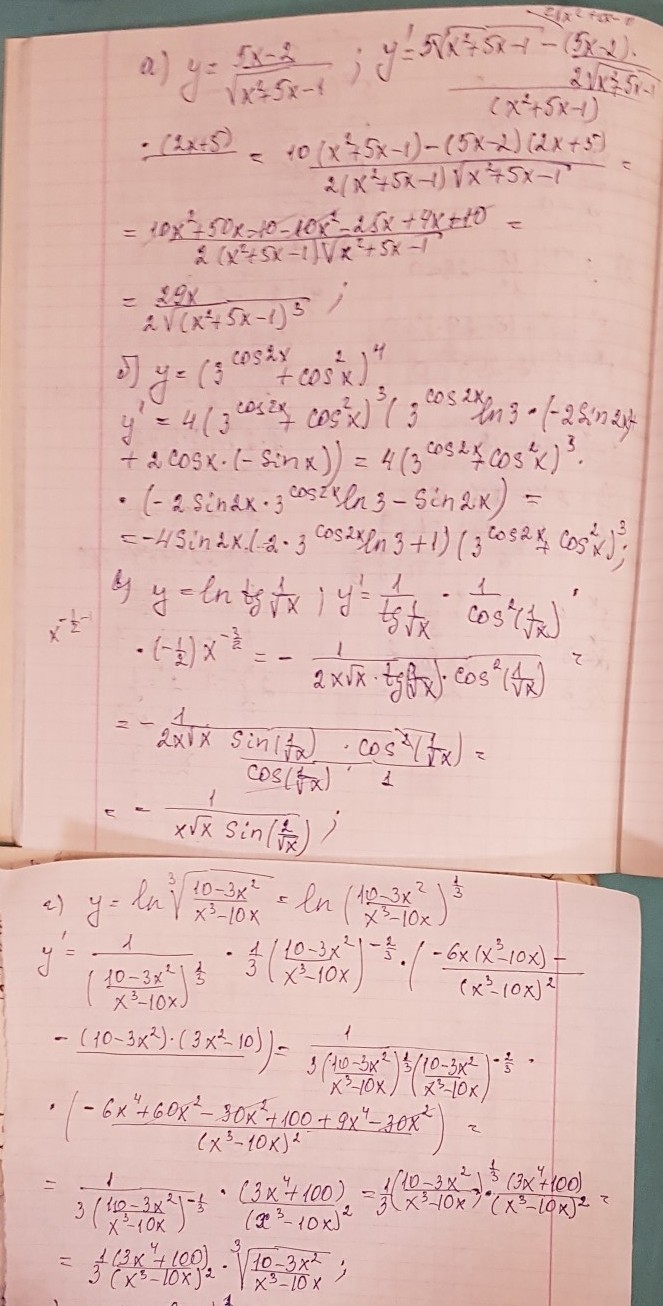 а) y = (5x-2)/√(x²+5x-1) ; y' = (5√(x²+5x-1) - (5x-2)/(2√(x²+5x-1)) ·
· (2x+5))/(x²+5x-1) = (10(x²+5x-1)-(5x-2)(2x+5))/(2(x²+5x-1)√(x²+5x-1)) =
= (10x²+50x-10-10x²-25x+4x+10)/(2(x²+5x-1)√(x²+5x-1)) =
= 29x/(2√(x²+5x-1)³) ;
б) y = (3^(cos2x) + cos²x)⁴
y' = 4(3^(cos2x) + cos²x)³ (3^(cos2x) ln3 · (-2sin2x)+
+ 2cosx·(-sinx)) = 4(3^(cos2x) + cos²x)³ ·
· (-2sin2x · 3^(cos2x) ln3 - sin2x) =
= -4sin2x·(2·3^(cos2x) ln3+1) (3^(cos2x) + cos²x)³ ;
x^(-1/2-1)
в) y = ln tg 1/√x ; y' = 1/(tg 1/√x) · 1/(cos²(1/√x)) ·
· (-1/2) x^(-3/2) = - 1/(2x√x · tg(1/√x) · cos²(1/√x)) =
= - 1/(2x√x sin(1/√x)/cos(1/√x) · cos²(1/√x)/1) =
= - 1/(x√x sin(2/√x)) ;
г) y = ln ³√((10-3x²)/(x³-10x)) = ln ((10-3x²)/(x³-10x))^(1/3)
y' = 1/((10-3x²)/(x³-10x))^(1/3) · 1/3 ((10-3x²)/(x³-10x))^(-2/3) · ((-6x(x³-10x) -
- (10-3x²)·(3x²-10))/(x³-10x)²) = 1/(3((10-3x²)/(x³-10x))^(1/3) ((10-3x²)/(x³-10x))^(-2/3)) ·
· ((-6x⁴+60x²-30x²+100+9x⁴-30x²)/(x³-10x)²) =
= 1/(3((10-3x²)/(x³-10x))^(-1/3)) · (3x⁴+100)/(x³-10x)² = 1/3 ((10-3x²)/(x³-10x))^(1/3) · (3x⁴+100)/(x³-10x)² =
= 1/3 (3x⁴+100)/(x³-10x)² · ³√((10-3x²)/(x³-10x)) ;